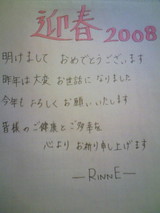 迎春 2008
明けまして おめでとうございます
昨年は大変 お世話に なりました
今年も よろしく お願いいたします
皆様の ご健康と ご多幸を
心より お祈り申し上げます
—RINNE—